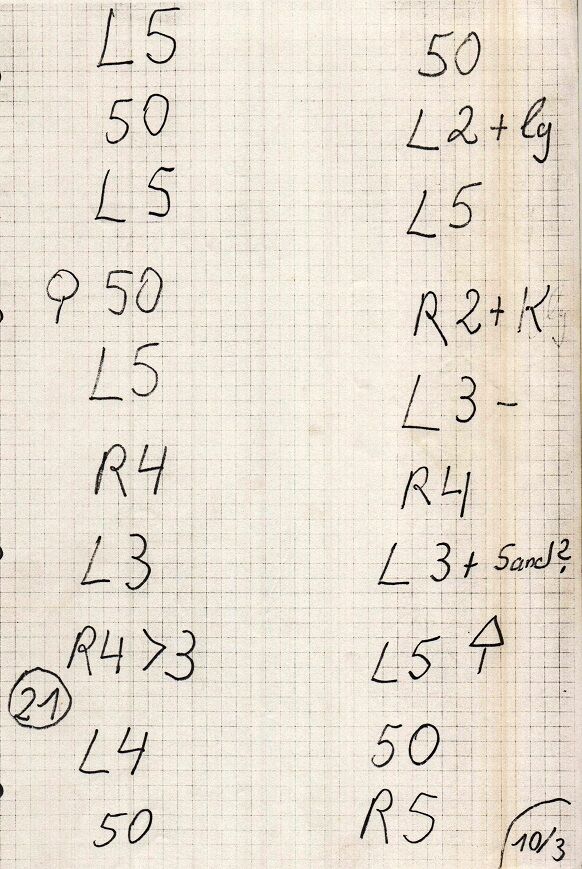 L5
50
L5
50
L5
R4
L3
R4 > 3
21
L4
50
50
L2 + lg
L5
R2 + K
L3 -
R4
L3 + Sand?
L5
50
R5
10/3